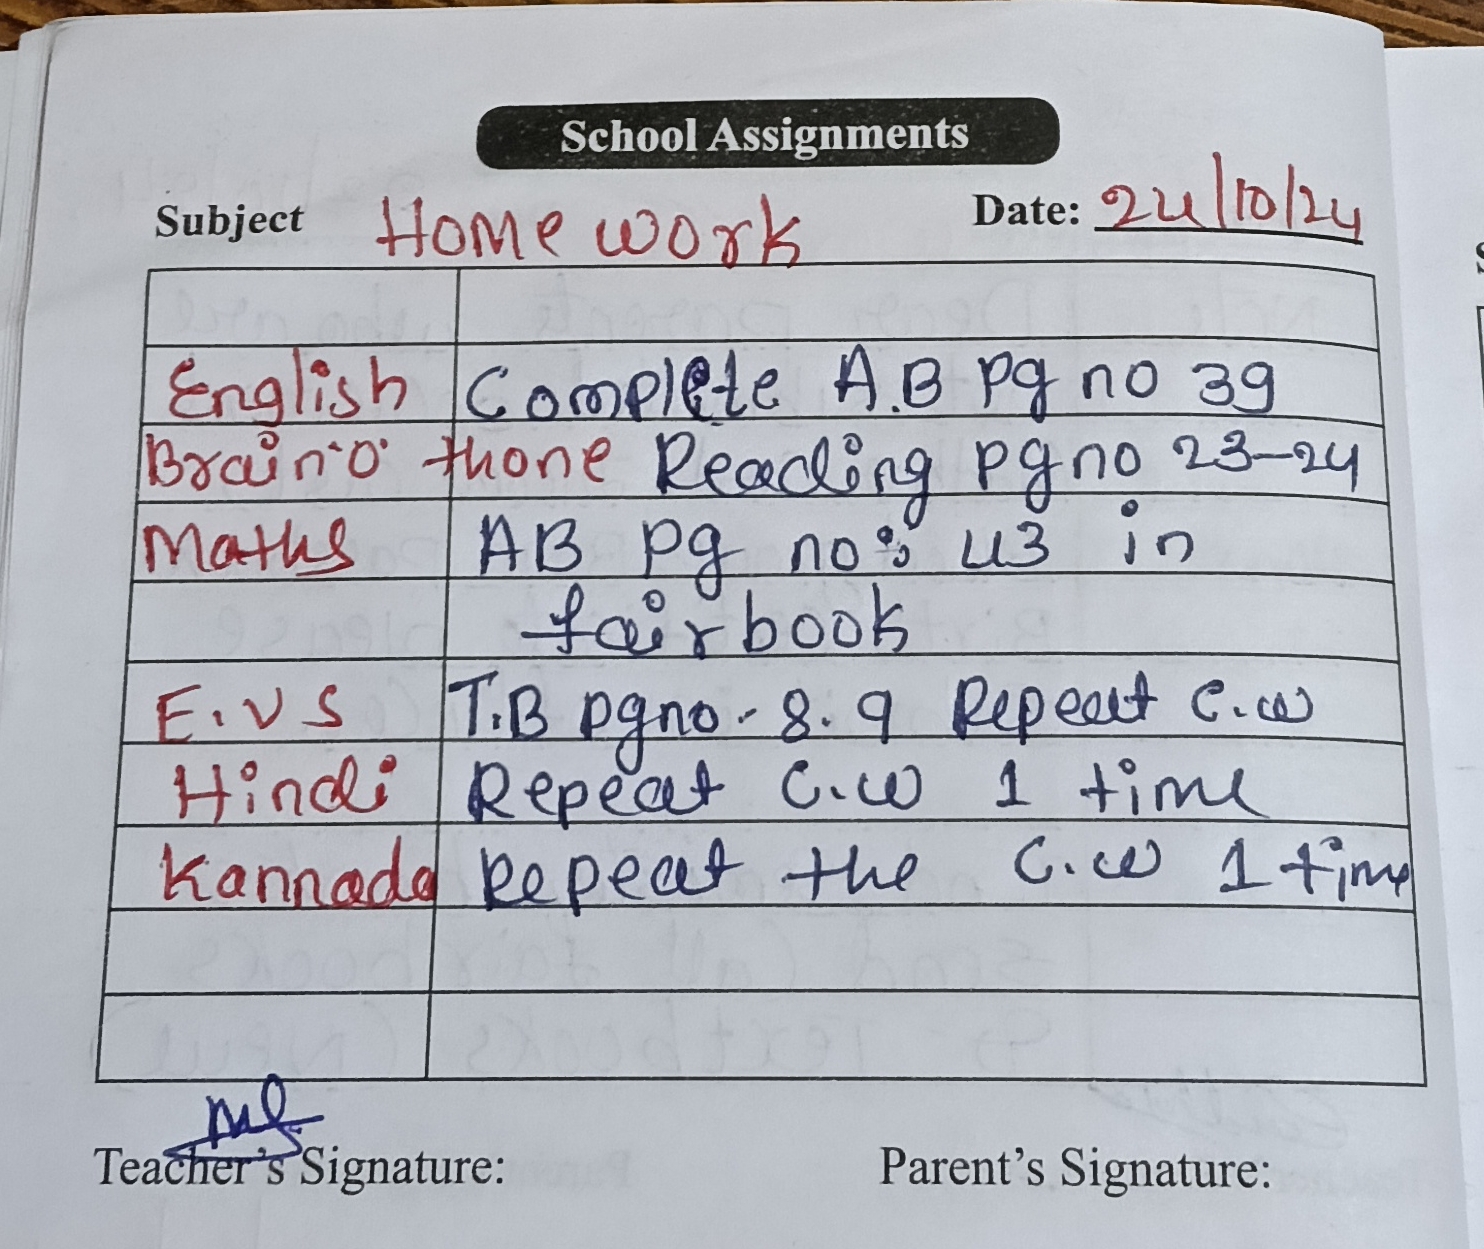 School Assignments
Subject Home work Date: 24/10/24
English Complete A.B pg no 39
Brain-o- thone Reading pg no 23-24
Maths AB pg no: 43 in
fairbook
E.V.S T.B pg no - 8.9 Repeat C.W
Hindi Repeat C.W 1 time
Kannada Repeat the C.W 1 time
Teacher's Signature: Parent's Signature: